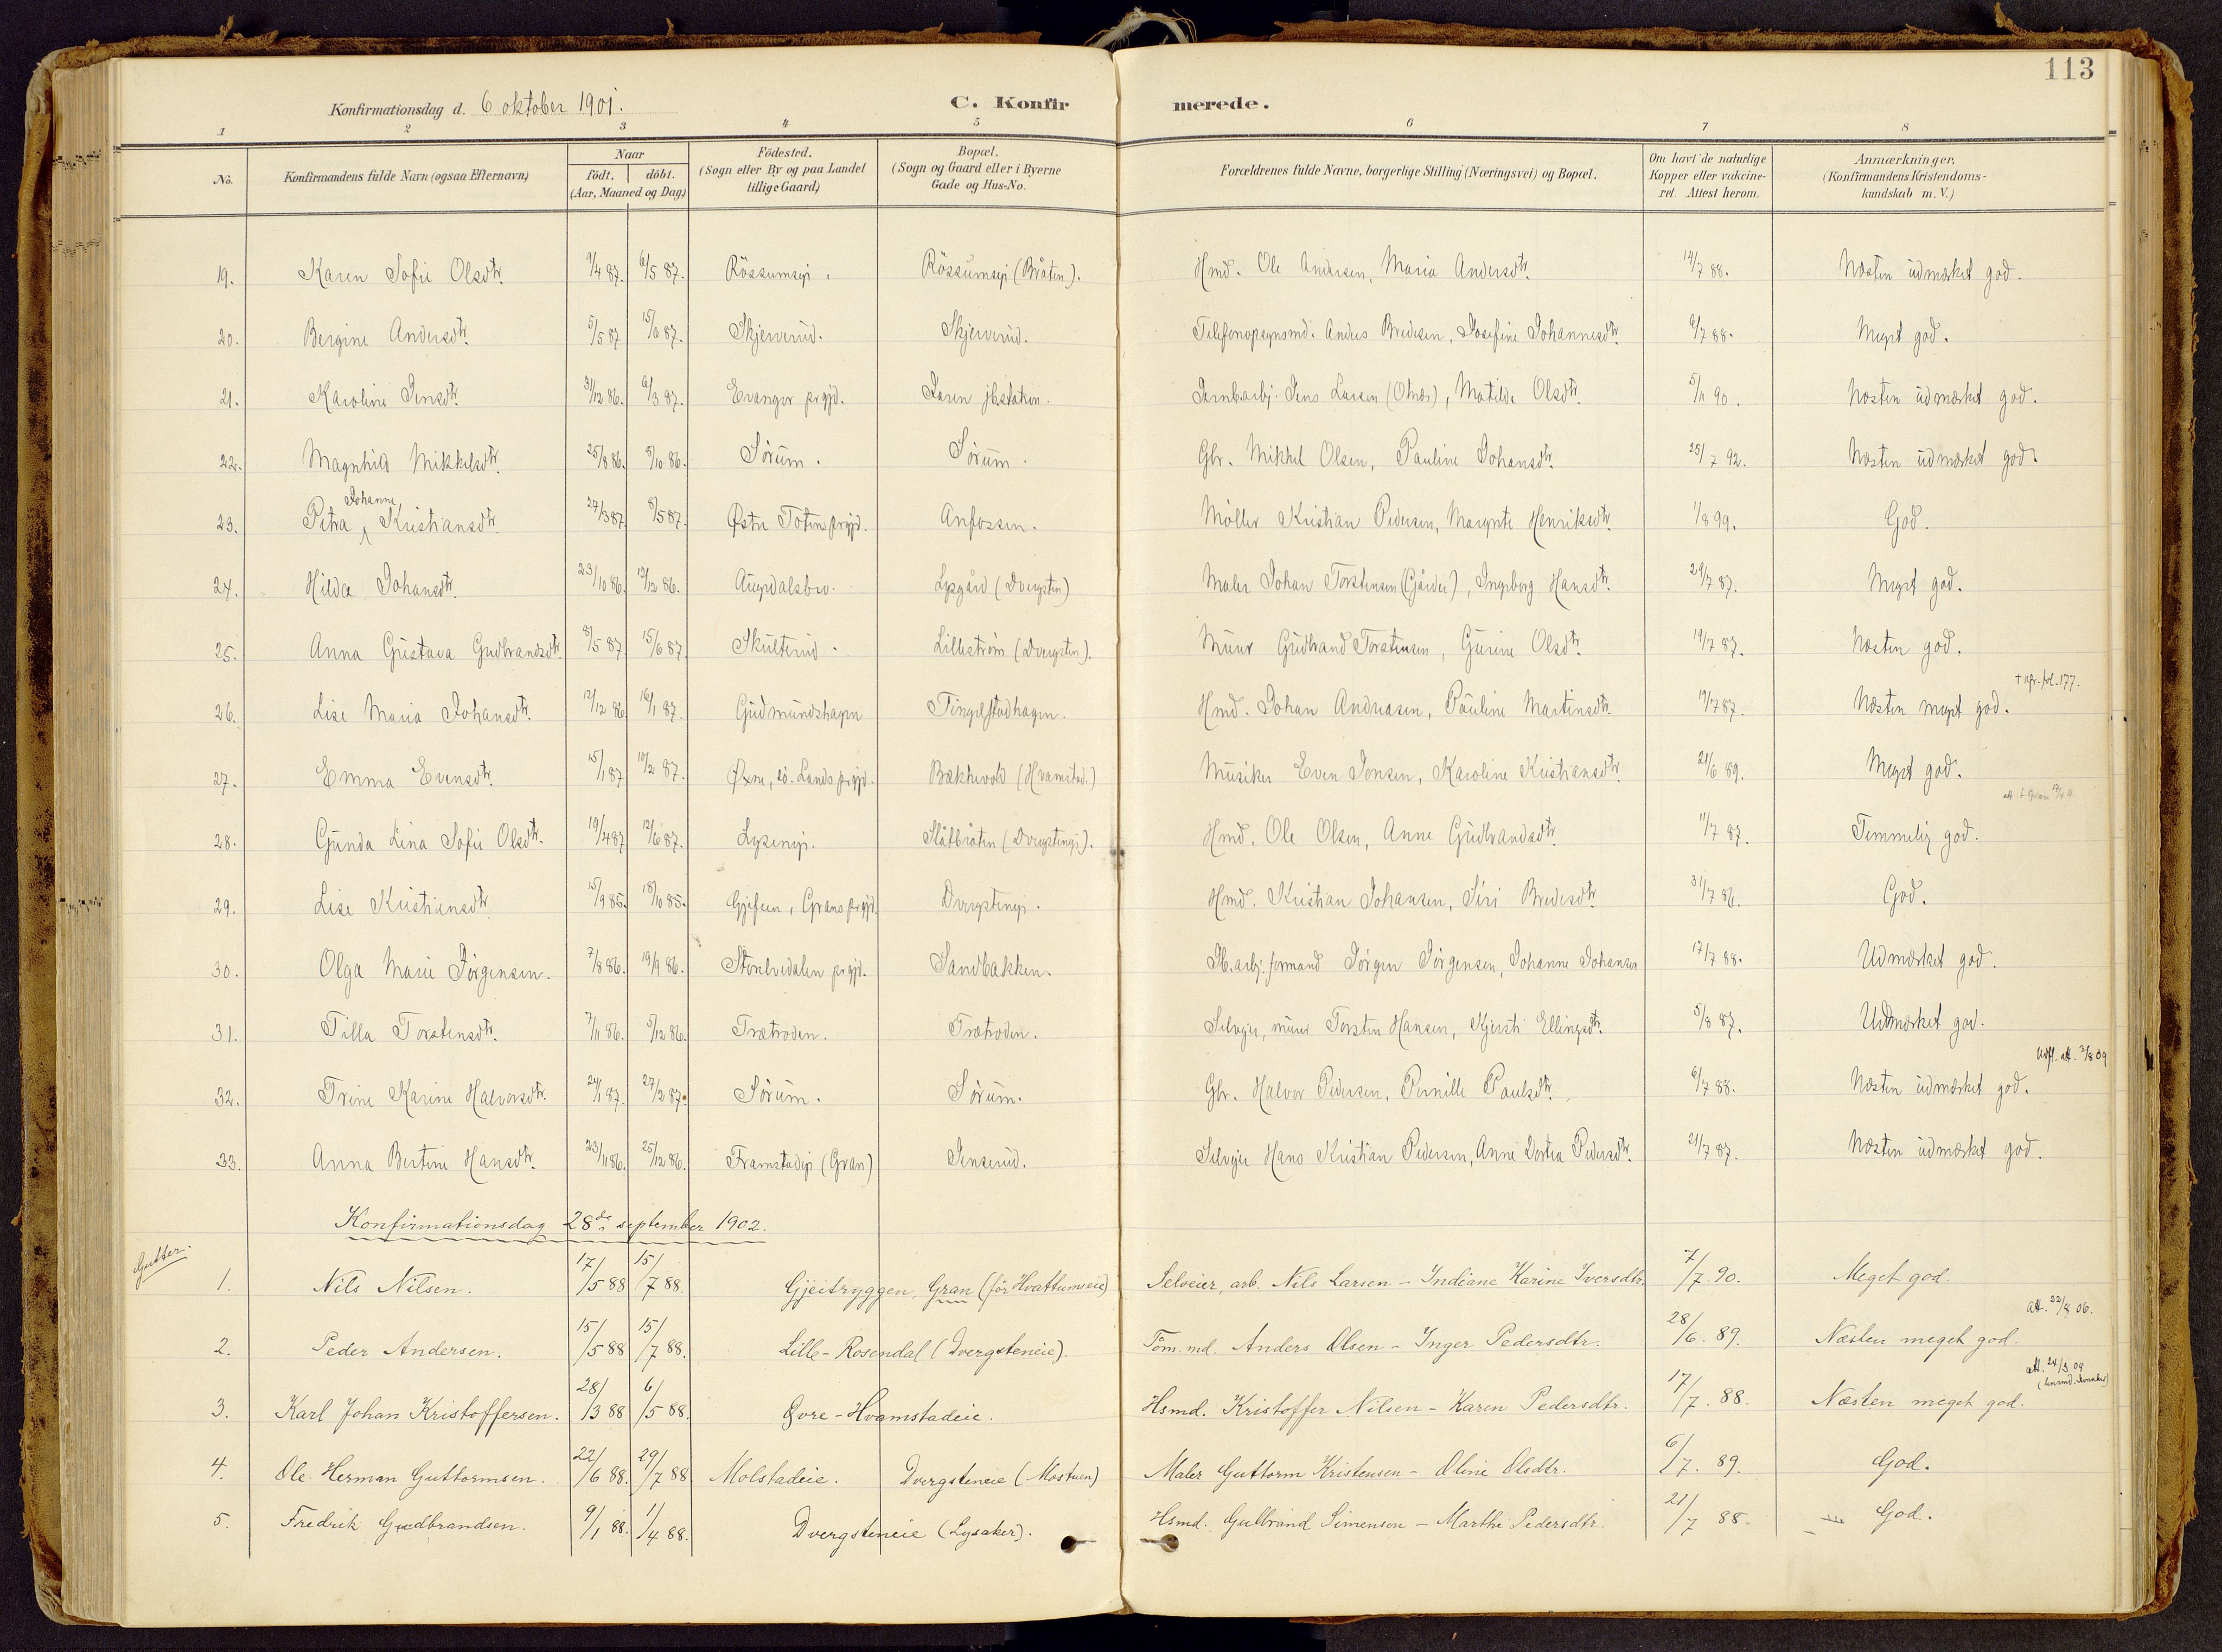 113
Konfirmationsdag d. 6 oktober 1901.
C. Konfirmerede.
1 2 3 4 5 6 7 8
No. Konfirmandens fulde Navn (ogsaa Efternavn) Naar født. døbt. (Aar, Maaned og Dag.) Fødested. (Sogn eller By og paa Landet tillige Gaard) Bopæl. (Sogn og Gaard eller i Byerne Gade og Hus-No. Forældrenes fulde Navne, borgerlige Stilling (Næringsvei) og Bopæl. Om havt de naturlige Kopper eller vakcineret. Attest herom. Anmærkninger. (Konfirmandens Kristendomskundskab m. V.)
19. Karen Sofie Olsdtr. 9/4 87. 6/5 87. Røssumsei. Røssumsei (Bråten). Hmd. Ole Andersen, Maria Andersdtr. 14/7 88. Næsten udmærket god.
20. Bergine Andersdtr. 5/5 87 15/6 87. Skjerverud. Skjerverud. Telefonopsynsmd. Andres Bredesen, Josefine Johannesdtr. 6/7 88. Meget god.
21. Karoline Jensdtr. 31/12 86. 6/3 87. Evanger prgjd. Jaren jbstation. Jernb.arbj. Jens Larsen (Otnæs), Matilde Olsdtr. 5/11 90. Næsten udmærket god.
22. Magnhild Mikkelsdtr. 25/8 86. 3/10 86. Sørum. Sørum. Gbr. Mikkel Olsen, Pauline Johansdtr. 25/7 92. Næsten udmærket god.
23. Petra Johanne Kristiansdtr. 27/3 87 8/5 87. Østre Totens prgjd. Anfossen. Møller Kristian Pedersen, Margrete Henriksdtr. 1/8 99. God.
24. Hilda Johansdtr. 23/10 86. 12/12 86. Augedalsbro. Lysgård (Dvergsten) Maler Johan Torstensen (Gårder), Ingeborg Hansdtr. 29/7 87. Meget god.
25. Anna Gustava Gudbrandsdtr. 8/5 87 15/6 87 Skulterud. Lillestrøm (Dvergsten). Murer Gudbrand Torstensen, Gurine Olsdtr. 19/7 87. Næsten god.
26. Lise Maria Johansdtr. 12/12 86 16/1 87. Gudmundshagen Tingelstadhagen. Hmd. Johan Andreasen, Pauline Martinsdtr. 19/7 87. Næsten meget god. + kfr. fol. 177.
27. Emma Evensdtr. 15/1 87 10/2 87. Øxne, sø. Lands prgjd. Bækkevold (Hvamstad.) Musiker Even Jonsen, Karoline Kristiansdtr. 21/6 89. Meget god.
28. Gunda Lina Sofie Olsdtr. 19/4 87 12/6 87. Lysenei. Slåtbråten (Dvergstenei). Hmd. Ole Olsen, Anne Gudbrandsdtr. 11/7 87. Temmelig god.
29. Lise Kristiansdtr. 15/9 85. 18/10 85. Gjefsen, Grans prgjd. Dvergstenei. Hmd. Kristian Johansen, Siri Bredesdtr. 31/7 86. God.
30. Olga Marie Jørgensen. 7/8 86. 19/9 86. Storelvedalen prgjd. Sandbakken. Jb.arbj. formand Jørgen Jørgensen, Johanne Johansen 17/7 88. Udmærket god.
31. Tilla Torstensdtr. 7/11 86. 5/12 86. Trætroden. Trætroden. Selvejer, murer Torsten Hansen, Kjersti Ellingsdtr. 5/8 87. Udmærket god.
32. Trine Karine Halvorsdtr. 24/1 87. 27/2 87. Sørum. Sørum. Gbr. Halvor Pedersen, Pernille Paulsdtr. 6/7 88. Næsten udmærket god. Udfl. att. 3/8 09
33. Anna Bertine Hansdtr. 23/11 86. 25/12 86. Framstadei (Gran) Jenserud. Selvejer Hans Kristian Pedersen, Anne Dortea Pedersdtr. 21/7 87. Næsten udmærket god.
Konfirmationsdag 28de september 1902.
Gutter.
1. Nils Nilsen. 17/5 88 15/7 88. Gjeitryggen, Gran (før Hvattumseie) Selveier, arb. Nils Larsen - Indiane Karine Iversdtr. 7/7. 90. Meget god.
2. Peder Andersen. 15/5 88 15/7 88. Lille-Rosendal (Dvergsteneie). Tøm.md. Anders Olsen - Inger Pedersdtr. 28/6. 89. Næsten meget god. att. 22/8 06.
3. Karl Johan Kristoffersen. 28/3 88 6/5 88. Øvre-Hvamstadeie. Hsmd. Kristoffer Nilsen - Karen Pedersdtr. 17/7. 88. Næsten meget god. att. 24/3 09
4. Ole Herman Guttormsen. 22/6 88. 29/7 88 Molstadeie. Dvergsteneie (Mostuen) Maler Guttorm Kristensen - Oline Olsdtr. 6/7. 89. God.
5. Fredrik Gudbrandsen. 9/1 88. 1/4 88. Dvergsteneie (Lysaker). Hsmd. Gulbrand Simensen - Marthe Pedersdtr. 21/7 88. God.